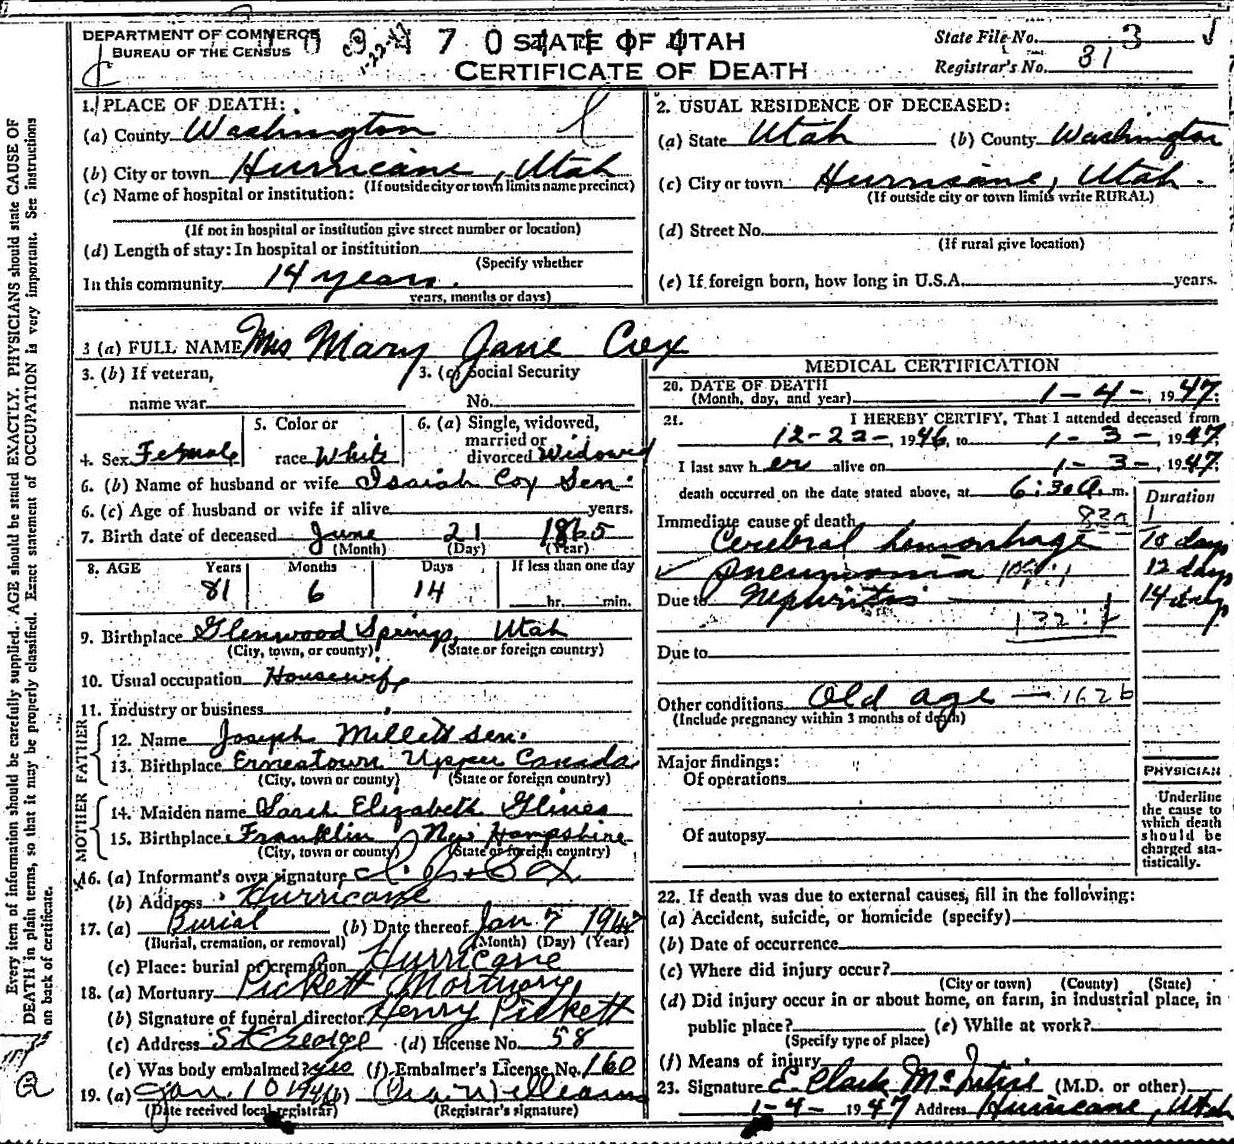 DEPARTMENT OF COMMERCE
BUREAU OF THE CENSUS
STATE OF UTAH
CERTIFICATE OF DEATH
State File No. 3
Registrar's No. 31
1. PLACE OF DEATH:
(a) County Washington
(b) City or town Hurricane, Utah
(If outside city or town limits name precinct)
(c) Name of hospital or institution:
(If not in hospital or institution give street number or location)
(d) Length of stay: In hospital or institution
(Specify whether
In this community 14 years.
years, months or days)
2. USUAL RESIDENCE OF DECEASED:
(a) State Utah (b) County Washington
(c) City or town Hurricane, Utah.
(If outside city or town limits write RURAL)
(d) Street No.
(If rural give location)
(e) If foreign born, how long in U.S.A. years.
3 (a) FULL NAME Mrs Mary Jane Cox
3. (b) If veteran,
name war
3. (c) Social Security
No.
4. Sex Female
5. Color or
race White
6. (a) Single, widowed,
married or
divorced Widowed
6. (b) Name of husband or wife Isaiah Cox Sen.
6. (c) Age of husband or wife if alive years.
7. Birth date of deceased June 21 1865
(Month) (Day) (Year)
8. AGE Years Months Days If less than one day
81 6 14 hr. min.
9. Birthplace Glenwood Springs, Utah
(City, town, or county) (State or foreign country)
10. Usual occupation Housewife
11. Industry or business
FATHER
12. Name Joseph Millett Sen.
13. Birthplace Ernestown Upper Canada
(City, town or county) (State or foreign country)
MOTHER
14. Maiden name Sarah Elizabeth Glines
15. Birthplace Franklin New Hampshire
(City, town or county) (State or foreign country)
16. (a) Informant's own signature
(b) Address Hurricane
17. (a) Burial (b) Date thereof Jan. 7 1947
(Burial, cremation, or removal) (Month) (Day) (Year)
(c) Place: burial or cremation Hurricane
18. (a) Mortuary Pickett Mortuary
(b) Signature of funeral director Henry Pickett
(c) Address St George (d) License No. 58
(e) Was body embalmed? yes (f) Embalmer's License No. 160
19. (a) Jan. 10 (b) Williams
(Date received local registrar) (Registrar's signature)
MEDICAL CERTIFICATION
20. DATE OF DEATH
(Month, day, and year) 1-4-, 1947.
21. I HEREBY CERTIFY, That I attended deceased from
12-22-, 1946, to 1-3-, 1947.
I last saw her alive on 1-3-, 1947.
death occurred on the date stated above, at 6:30 a. m.
Duration
Immediate cause of death 83a
Cerebral hemorrhage 10 days
Pneumonia 12 days
Due to Nephritis 14 days
132:1
Due to
Other conditions Old age — 162b
(Include pregnancy within 3 months of death)
Major findings:
Of operations
Of autopsy
PHYSICIAN
Underline
the cause to
which death
should be
charged sta-
tistically.
22. If death was due to external causes, fill in the following:
(a) Accident, suicide, or homicide (specify)
(b) Date of occurrence
(c) Where did injury occur?
(City or town) (County) (State)
(d) Did injury occur in or about home, on farm, in industrial place, in
public place? (e) While at work?
(Specify type of place)
(f) Means of injury
23. Signature E. Clark McIntire (M.D. or other)
1-4- 1947 Address Hurricane, Utah
Every item of information should be carefully supplied. AGE should be stated EXACTLY. PHYSICIANS should state CAUSE OF
DEATH in plain terms, so that it may be properly classified. Exact statement of OCCUPATION is very important. See instructions
on back of certificate.